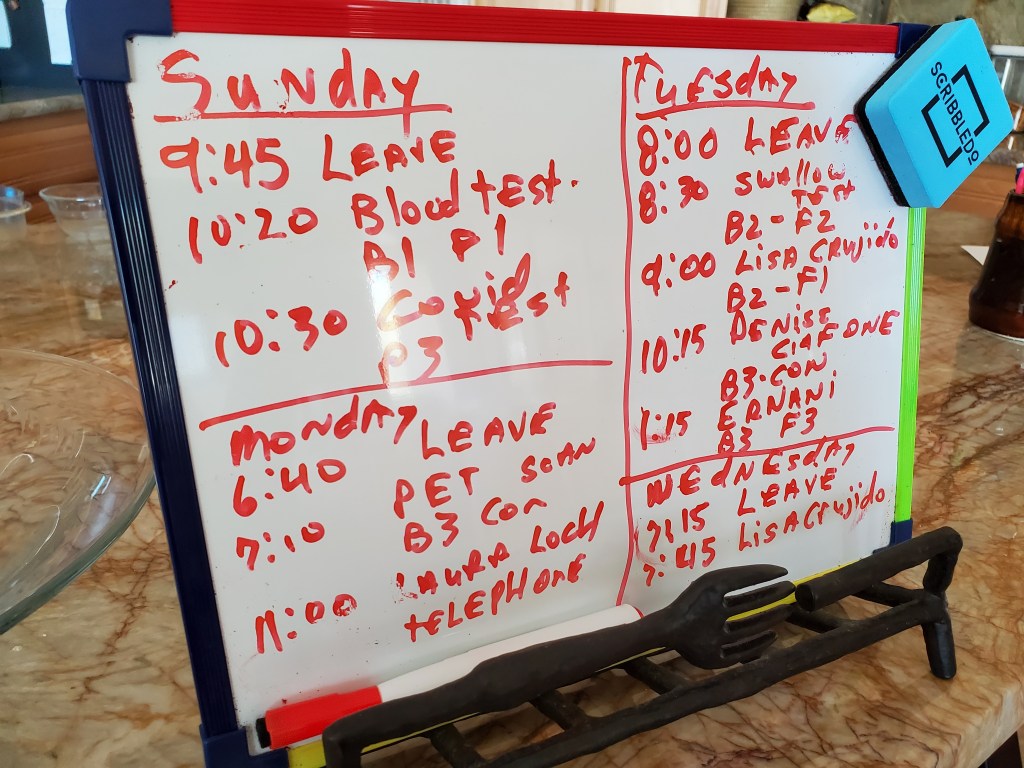 Sunday
9:45 LEAVE
10:20 Blood test.
B1 P1
10:30 Covid
test
P3
Monday
6:40 LEAVE
7:10 PET SCAN
B3 Con
11:00 LAURA LOCH
TELEPHONE
Tuesday
8:00 LEAVE
8:30 Swallow
TEST
B2-F2
9:00 LISA CRUJIDO
B2-F1
10:15 DENISE
CIAFONE
B3-CON
1:15 ERNANI
B3 F3
WEDNESDAY
7:15 LEAVE
7:45 LISA CRUJIDO
SCRIBBLEDO